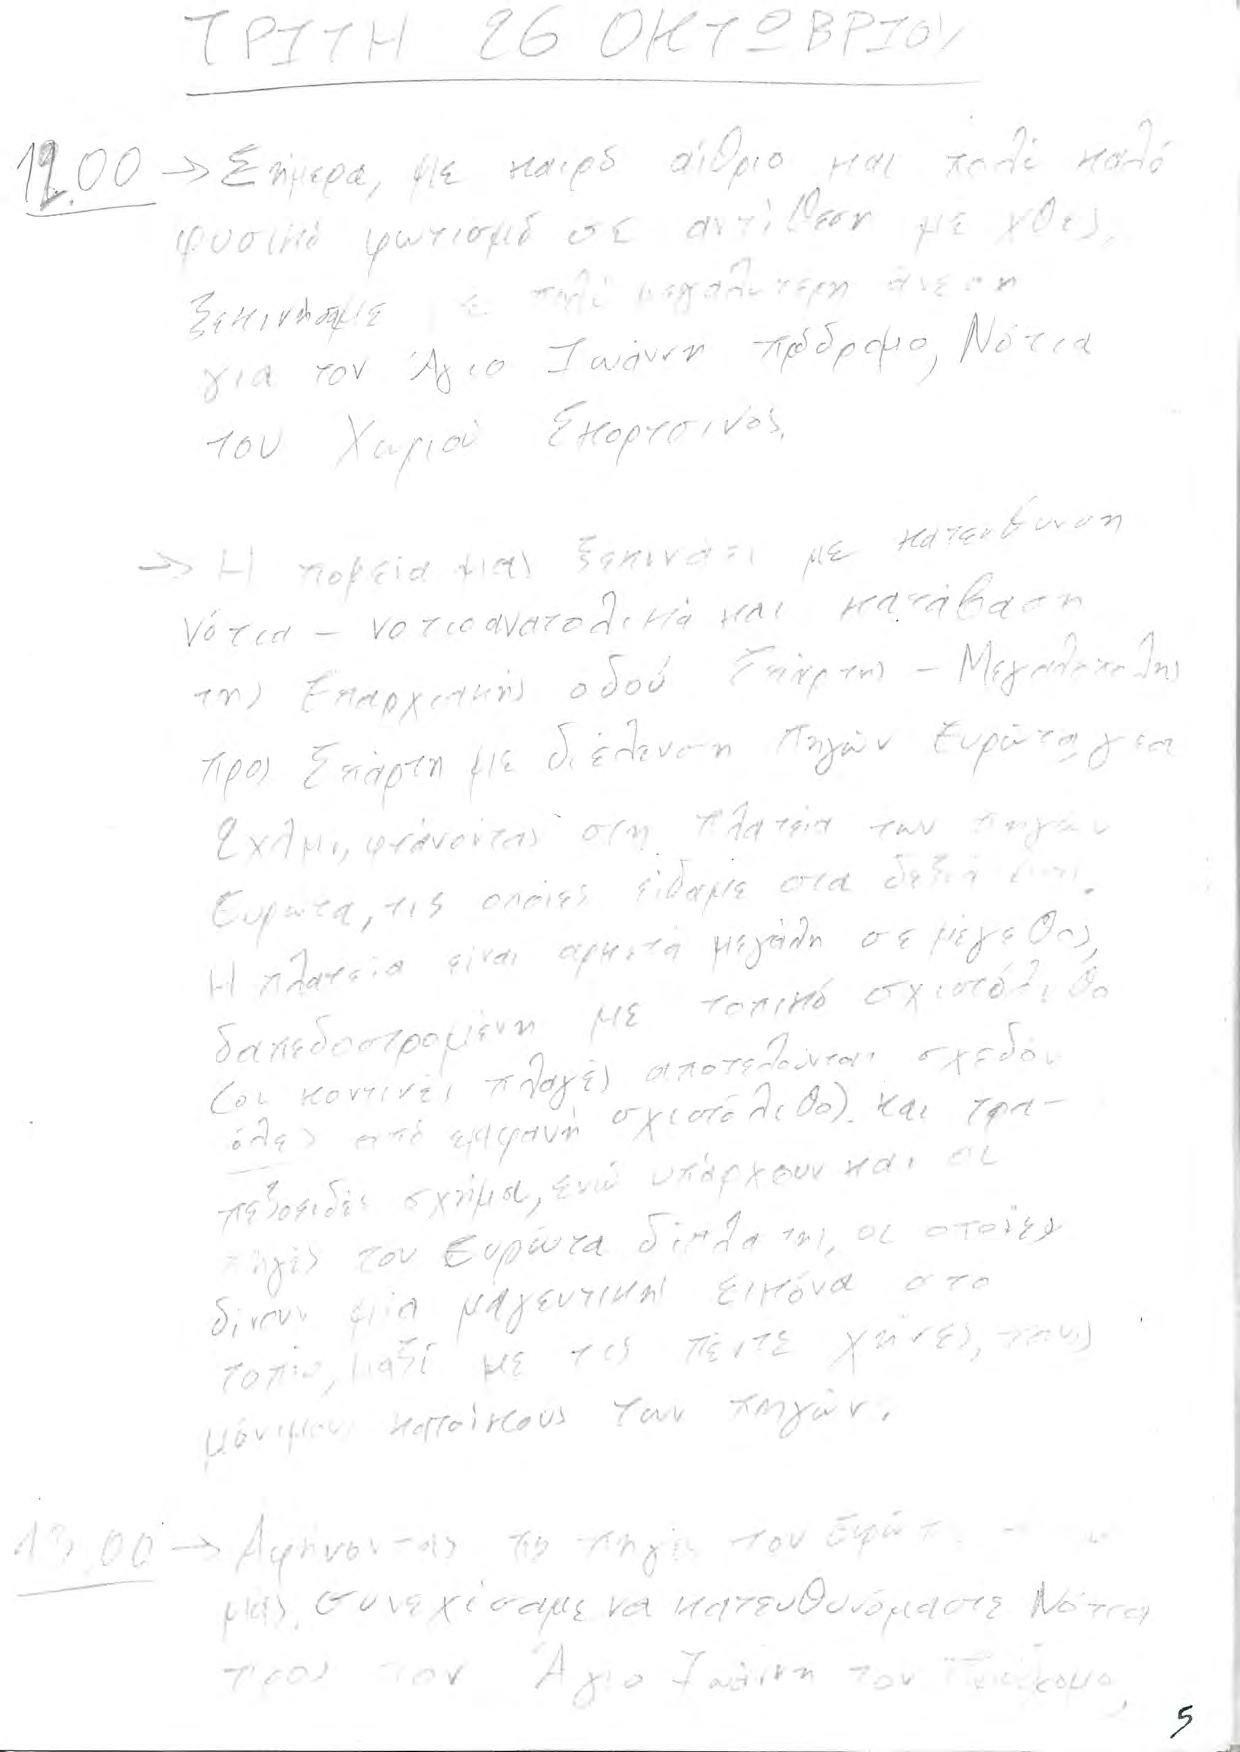 ΤΡΙΤΗ 26 ΟΚΤΩΒΡΙΟΥ
12.00 → Σήμερα, με καιρό αίθριο και πολύ καλό
φυσικό φωτισμό σε αντίθεση με χθες,
ξεκινήσαμε με πολύ μεγαλύτερη άνεση
για τον Άγιο Ιωάννη Πρόδρομο, Νότια
του Χωριού Σκορτσινός.
→ Η πορεία μας ξεκινάει με κατεύθυνση
νότια - νοτιοανατολικά και κατάβαση
της Επαρχιακής οδού Σπάρτης - Μεγαλόπολης
προς Σπάρτη με διέλευση πηγών Ευρώτα για
2χλμ, φτάνοντας στη πλατεία των πηγών
Ευρώτα, τις οποίες είδαμε στα δεξιά μας.
Η πλατεία είναι αρκετά μεγάλη σε μέγεθος,
δαπεδοστρωμένη με τοπικό σχιστόλιθο
(οι κοντινές πλαγιές αποτελούνται σχεδόν
όλες από εμφανή σχιστόλιθο). και τρα-
πεζοειδές σχήμα, ενώ υπάρχουν και οι
πηγές του Ευρώτα δίπλα της, οι οποίες
δίνουν μία μαγευτική εικόνα στο
τοπίο, μαζί με τις πέντε χήνες, τους
μόνιμους κατοίκους των πηγών.
13.00 → Αφήνοντας τις πηγές του Ευρώτα
μας, συνεχίσαμε να κατευθυνόμαστε Νότια
προς τον Άγιο Ιωάννη τον Πρόδρομο,
5